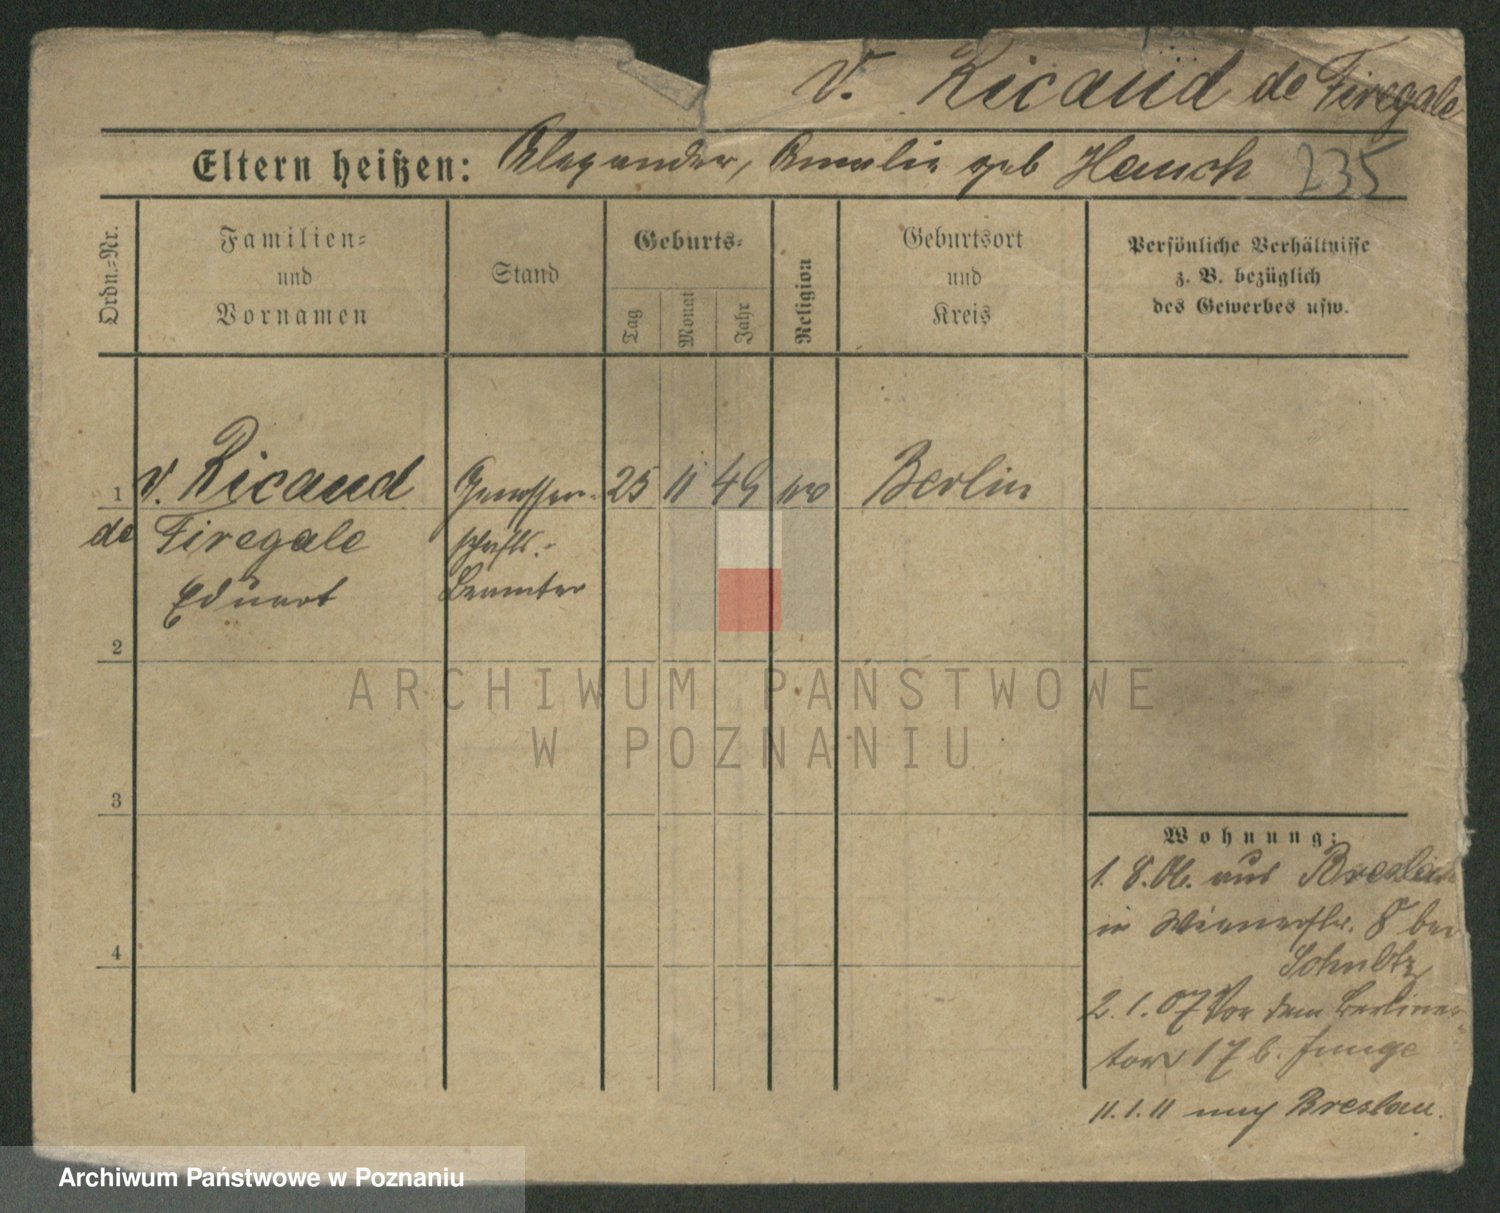 v. Ricaud de Tiregale
Eltern heißen: Alexander, Amalie geb Hauch 235
Ordn.-Nr.
Familien- und Vornamen
Stand
Geburts-
Tag
Monat
Jahr
Religion
Geburtsort und Kreis
Persönliche Verhältnisse
z. B. bezüglich
des Gewerbes usw.
1 v. Ricaud Genossen- 25 11 49 Berlin
de Tiregale schafts.-
Eduart Beamter
2
3
4
Wohnung:
1. 8. 06. aus Breslau
in Wienerstr. 8 bei
Schultz
2. 1. 07 Vor dem Berliner-
tor 17 b. Junge
11. 1. 11 nach Breslau.
ARCHIWUM PAŃSTWOWE
W POZNANIU
Archiwum Państwowe w Poznaniu